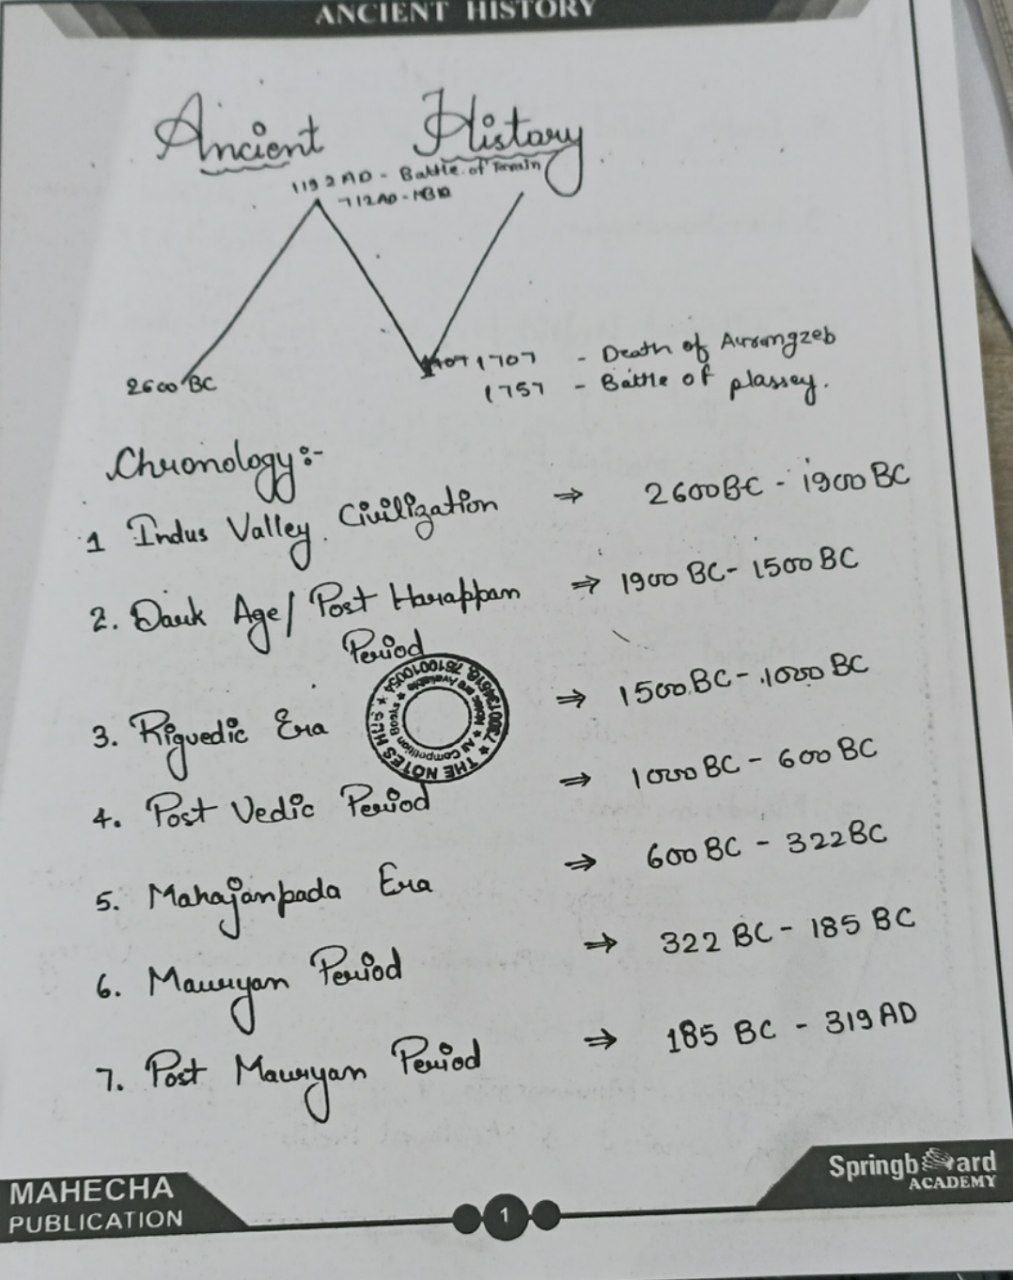 ANCIENT HISTORY
Ancient History
1192 AD - Battle of Terrain
712 AD - MBQ
2600 BC
1707 - Death of Aurangzeb
1757 - Battle of plassey.
Chronology:-
1 Indus Valley Civilization ⇒ 2600 BC - 1900 BC
2. Dark Age/Post Harappan Period ⇒ 1900 BC - 1500 BC
3. Rigvedic Era ⇒ 1500 BC - 1000 BC
THE NOTES
4. Post Vedic Period ⇒ 1000 BC - 600 BC
5. Mahajanpada Era ⇒ 600 BC - 322 BC
6. Mauryan Period ⇒ 322 BC - 185 BC
7. Post Mauryan Period ⇒ 185 BC - 319 AD
MAHECHA
PUBLICATION
1
Springboard
ACADEMY